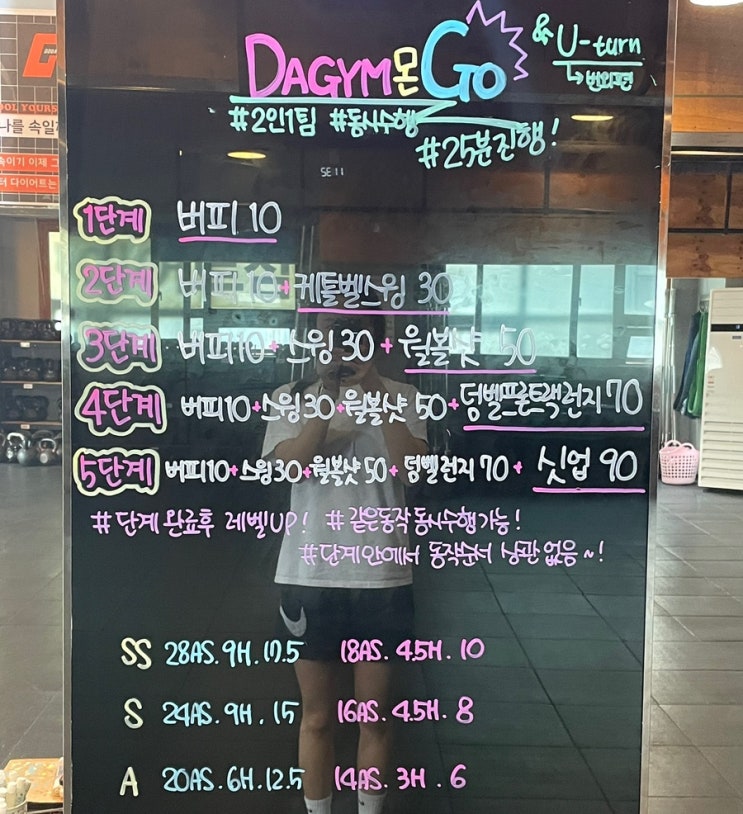 DAGYM몬GO & U-turn
↳ 번외편
#2인1팀 #동시수행
#25분진행!
OOL YOURS
나를 속일
속이기 이제 그
터 다이어트는
SE11
1단계 버피 10
2단계 버피 10+케틀벨스윙 30
3단계 버피10+스윙30+월볼샷 50
4단계 버피10+스윙30+월볼샷 50+덤벨프론트랙런지70
5단계 버피10+스윙30+월볼샷50+덤벨런지70+싯업 90
#단계완료후 레벨UP! #같은동작동시수행가능!
#단계안에서 동작순서 상관없음~!
SS 28AS.9H.17.5 18AS.4.5H.10
S 24AS.9H.15 16AS.4.5H.8
A 20AS.6H.12.5 14AS.3H.6